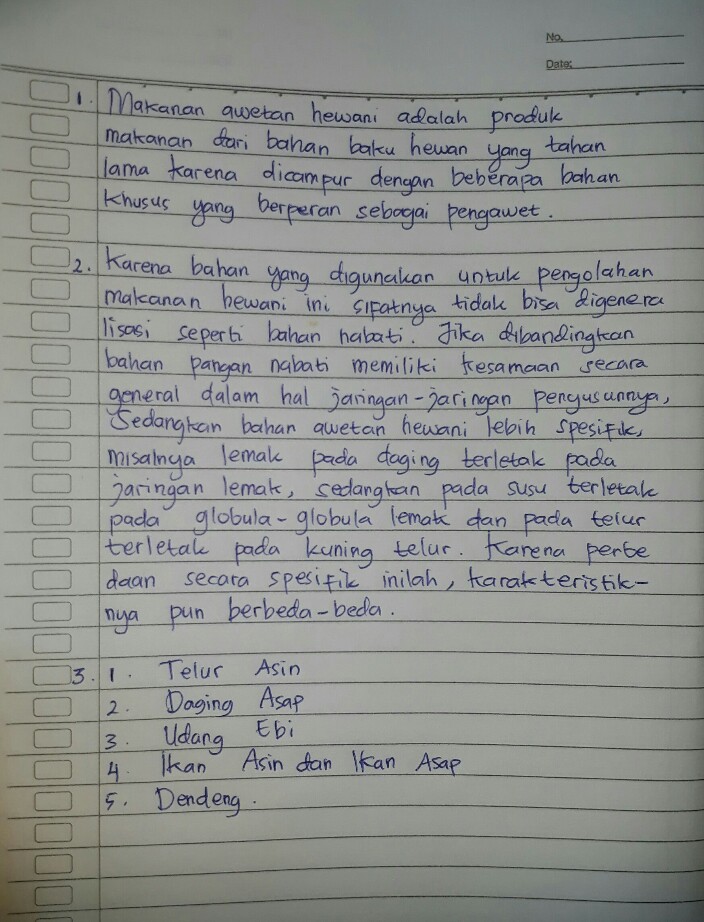 No.
Date:
1. Makanan awetan hewani adalah produk
makanan dari bahan baku hewan yang tahan
lama karena dicampur dengan beberapa bahan
khusus yang berperan sebagai pengawet.
2. Karena bahan yang digunakan untuk pengolahan
makanan hewani ini sifatnya tidak bisa digenera
lisasi seperti bahan nabati. Jika dibandingkan
bahan pangan nabati memiliki kesamaan secara
general dalam hal jaringan-jaringan pengusunnya,
Sedangkan bahan awetan hewani lebih spesifik,
misalnya lemak pada daging terletak pada
jaringan lemak, sedangkan pada susu terletak
pada globula-globula lemak dan pada telur
terletak pada kuning telur. Karena perbe
daan secara spesifik inilah, karakteristik-
nya pun berbeda-beda.
3. 1. Telur Asin
2. Daging Asap
3. Udang Ebi
4. Ikan Asin dan Ikan Asap
5. Dendeng.